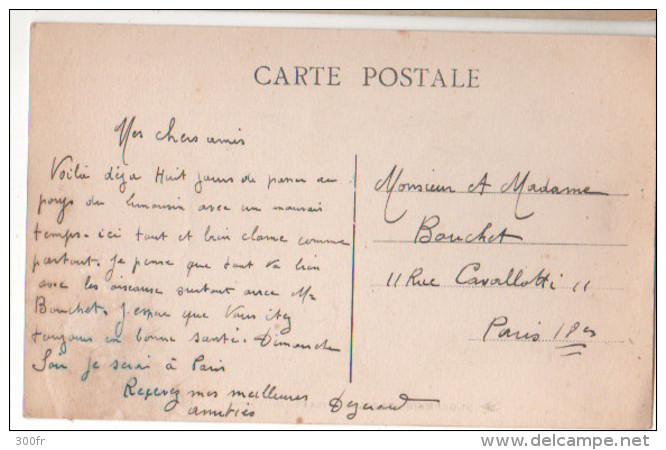 CARTE POSTALE
Mes chers amis
Voilà déja Huit jours de passer au
pays du limousin avec un mauvais
temps. ici tout et bien clame comme
partout. je pense que tout va bien
avec les oiseaux surtout avec Mr
Bouchet. j'espere que Vous etez
toujours en bonne santé. Dimanche
Soir je serai à Paris
Recevez mes meilleures
amitiés
Monsieur et Madame
Bouchet
11 Rue Cavallotti 11
Paris 18es
300fr
delcampe.net